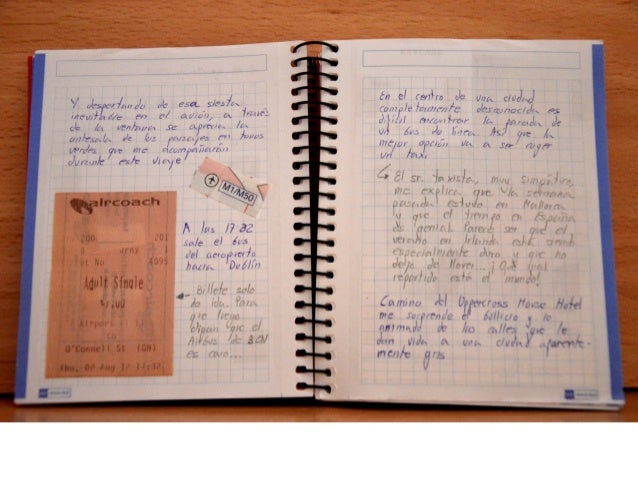 Y despertando de esa siesta
inevitable en el avión, a través
de la ventana se aprecia la
antesala de los paisajes en tonos
verdes que me acompañarán
durante este viaje
M1/M50
aircoach
200 201
rney
et No 4095
Adult Single
Airport
To
O'Connell St (GH)
Thu, 02 Aug 12 17:32
A las 17:32
sale el bus
del aeropuerto
hacia Dublín
Billete solo
de ida. Para
que luego
digan que el
Airbus de BCN
es caro...
En el centro de una ciudad
completamente desconocida es
difícil encontrar la parada de
un bus de línea. Así que la
mejor opción va a ser coger
un taxi
El sr. taxista, muy simpático,
me explica que la semana
pasada estuvo en Mallorca
y que el tiempo en España
es genial. Parece ser que el
verano en Irlanda está siendo
especialmente duro y que no
deja de llover... ¡ Qué mal
repartido está el mundo!
Camino del Uppercross House Hotel
me sorprende el bullicio y lo
animado de las calles que le
dan vida a una ciudad aparente-
mente gris